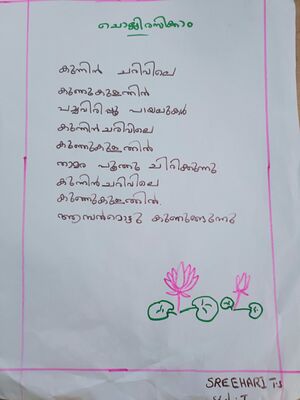 ചൊല്ലിരസിക്കാം
കുന്നിൻ ചരിവിലെ
കുഞ്ഞുകുളത്തിൻ
പച്ചവിരിപ്പൂ പായലുകൾ
കുന്നിൻചരിവിലെ
കുഞ്ഞുകുളത്തിൽ
താമര പൂത്തു ചിരിക്കുന്നു
കുന്നിൻചരിവിലെ
കുഞ്ഞുകുളത്തിൽ
ആമ്പൽമൊട്ടു കുണുങ്ങുന്നു
SREEHARI T.S